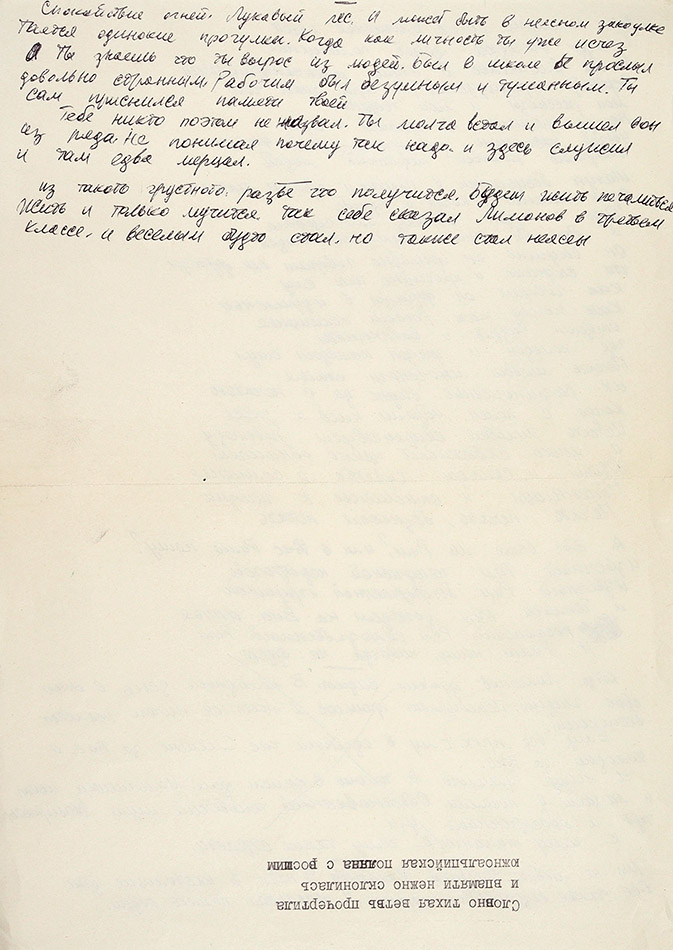 Спокойствие огней. Лукавый лес. И может быть в неясном закоулке
таятся одинокие прогулки. Когда как личность ты уже исчез
А ты знаешь что ты вырос из людей. Был в школе прослыл
довольно странным. Рабочим был безумным и туманным. Ты
сам приснился памяти твоей
Тебе никто поэтом не назвал. Ты молча встал и вышел вон
из ряда. Не понимая почему так надо. и здесь служил
и там едва мерцал.
из такого грустного. разве что получится. Будет жить печалиться
Жить и только мучится так себе сказал Лимонов в третьем
классе. и веселым будто стал. но также стал неясен
Словно тихая ветвь прочертила
и впамяти нежно склонилась
южноальпийская поляна с росшим